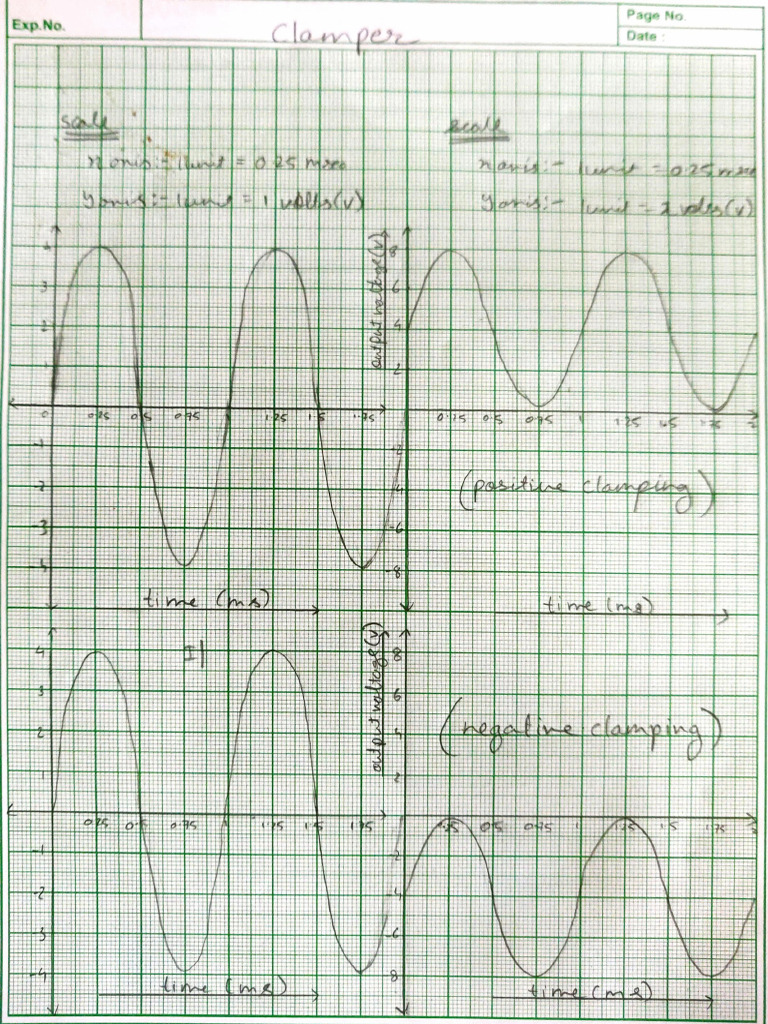 Exp.No.
Clamper
Page No.
Date :
scale
x axis:- 1 unit = 0.25 msec
y axis:- 1 unit = 1 volts(v)
scale
x axis:- 1 unit = 0.25 msec
y axis:- 1 unit = 2 volts(v)
4
3
2
1
0
0.25 0.5 0.75 1 1.25 1.5 1.75
-1
-2
-3
time (ms)
output voltage(v)
8
6
4
2
0.25 0.5 0.75 1 1.25 1.5 1.75 2
-2
-4
-6
-8
(positive clamping)
time (ms)
4
3
2
1
0.25 0.5 0.75 1 1.25 1.5 1.75
-1
-2
-3
-4
time (ms)
output voltage(v)
8
6
4
2
(negative clamping)
0.25 0.5 0.75 1 1.25 1.5 1.75
-2
-4
-6
8
time (ms)